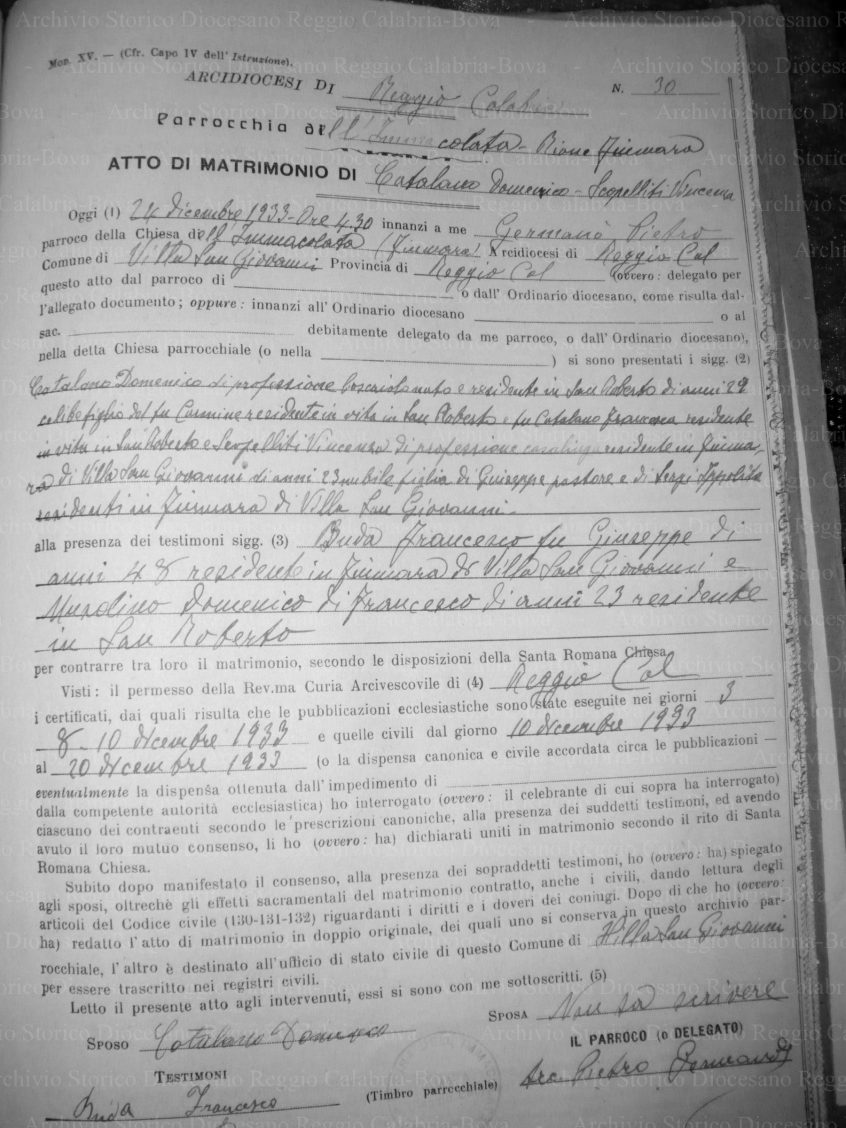 Mod. XV. — (Cfr. Capo IV dell' Istruzione).
ARCIDIOCESI DI Reggio Calabria N. 30
Parrocchia dell'Immacolata - Rione Fiumara
ATTO DI MATRIMONIO DI Catalano Domenico - Scopelliti Vincenza
Oggi (1) 24 dicembre 1933 - Ore 4.30 innanzi a me Germanò Pietro
parroco della Chiesa dell'Immacolata (Fiumara) Arcidiocesi di Reggio Cal
Comune di Villa San Giovanni Provincia di Reggio Cal (ovvero: delegato per
questo atto dal parroco di o dall' Ordinario diocesano, come risulta dal-
l'allegato documento; oppure: innanzi all' Ordinario diocesano o al
sac. debitamente delegato da me parroco, o dall' Ordinario diocesano),
nella detta Chiesa parrocchiale (o nella ) si sono presentati i sigg. (2)
Catalano Domenico di professione nato e residente in San Roberto di anni 29
celibe figlio del fu Carmine residente in vita in San Roberto e fu Catalano Francesca residente
in vita in San Roberto e Scopelliti Vincenza di professione casalinga residente in Fiuma-
ra di Villa San Giovanni di anni 23 nubile figlia di Giuseppe pastore e di Sergi Ippolita
residenti in Fiumara di Villa San Giovanni.
alla presenza dei testimoni sigg. (3) Buda Francesco fu Giuseppe di
anni 48 residente in Fiumara di Villa San Giovanni e
Musolino Domenico di Francesco di anni 23 residente
in San Roberto
per contrarre tra loro il matrimonio, secondo le disposizioni della Santa Romana Chiesa.
Visti: il permesso della Rev.ma Curia Arcivescovile di (4) Reggio Cal
i certificati, dai quali risulta che le pubblicazioni ecclesiastiche sono state eseguite nei giorni 3
8 - 10 dicembre 1933 e quelle civili dal giorno 10 dicembre 1933
al 20 dicembre 1933 (o la dispensa canonica e civile accordata circa le pubblicazioni —
eventualmente la dispensa ottenuta dall'impedimento di
dalla competente autorità ecclesiastica) ho interrogato (ovvero: il celebrante di cui sopra ha interrogato)
ciascuno dei contraenti secondo le prescrizioni canoniche, alla presenza dei suddetti testimoni, ed avendo
avuto il loro mutuo consenso, li ho (ovvero: ha) dichiarati uniti in matrimonio secondo il rito di Santa
Romana Chiesa.
Subito dopo manifestato il consenso, alla presenza dei sopraddetti testimoni, ho (ovvero: ha) spiegato
agli sposi, oltrechè gli effetti sacramentali del matrimonio contratto, anche i civili, dando lettura degli
articoli del Codice civile (130-131-132) riguardanti i diritti e i doveri dei coniugi. Dopo di che ho (ovvero:
ha) redatto l'atto di matrimonio in doppio originale, dei quali uno si conserva in questo archivio par-
rocchiale, l'altro è destinato all'ufficio di stato civile di questo Comune di Villa San Giovanni
per essere trascritto nei registri civili.
Letto il presente atto agli intervenuti, essi si sono con me sottoscritti. (5)
SPOSO Catalano Domenico SPOSA Non sa scrivere
TESTIMONI IL PARROCO (o DELEGATO)
Buda Francesco (Timbro parrocchiale) Arc. Pietro Germanò
Archivio Storico Diocesano Reggio Calabria-Bova